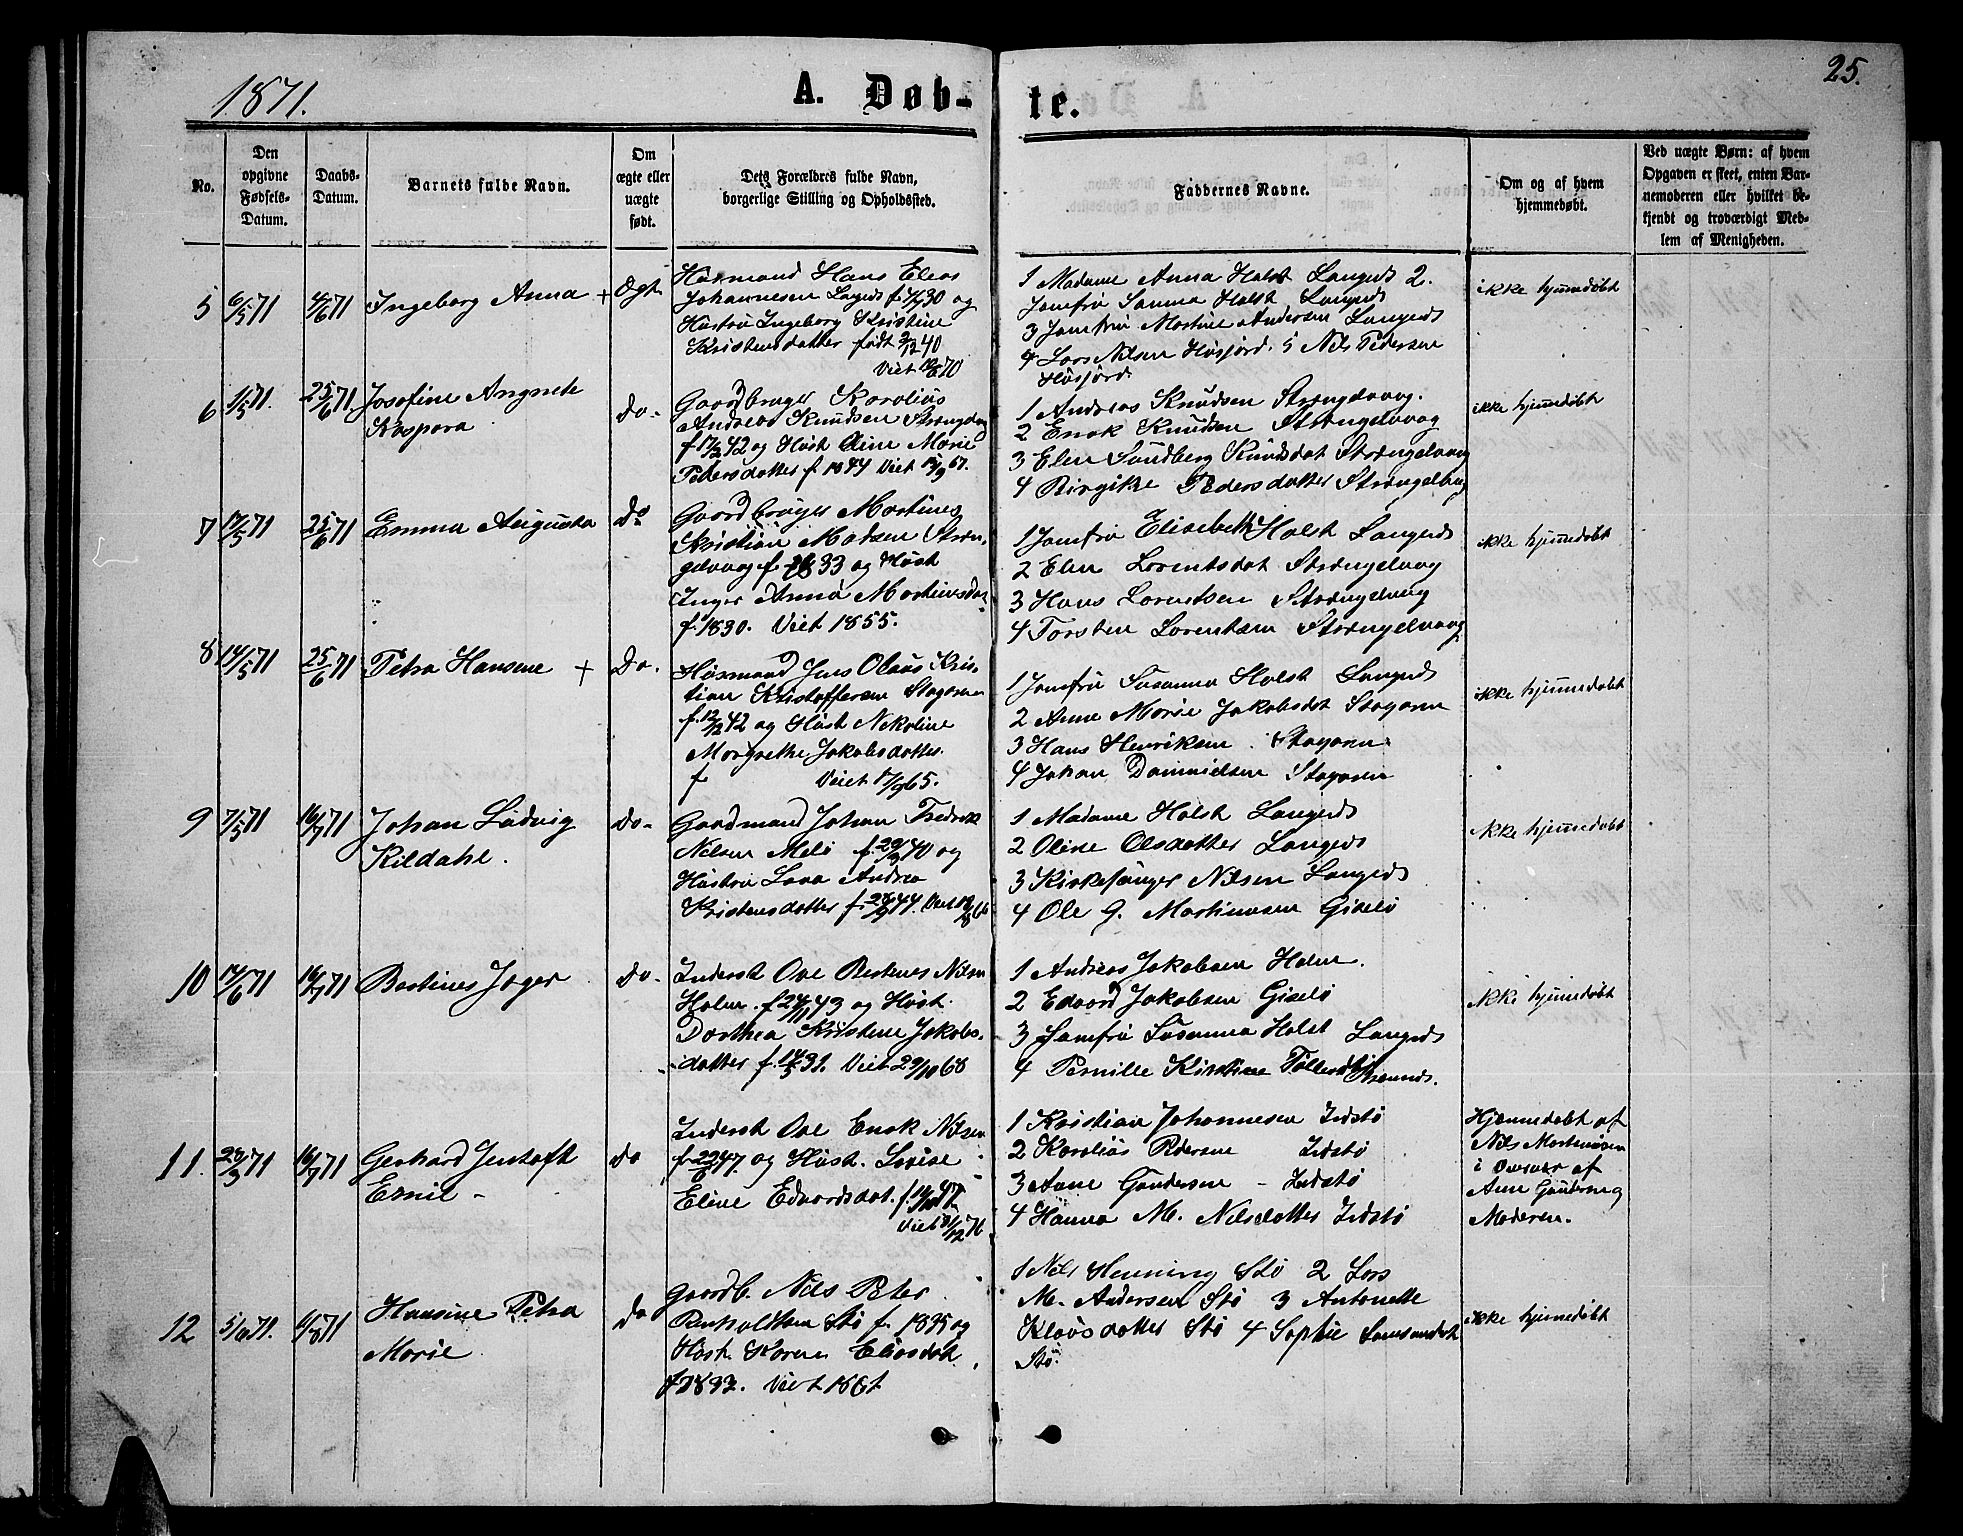 1871.
A. Døb-
te.
25.
No.
Den opgivne Fødsels-Datum.
Daabs-Datum.
Barnets fulde Navn.
Om ægte eller uægte født.
Dets Forældres fulde Navn, borgerlige Stilling og Opholdssted.
Faddernes Navne.
Om og af hvem hjemmedøbt.
Ved uægte Børn: af hvem Opgaven er skeet, enten Barnemoderen eller hvilket bekjendt og troværdigt Medlem af Menigheden.
5 6/5 71 4/6 71 Ingeborg Anna + Ægt.
Husmand Hans Elias
Johannesen og
Hustru Ingeborg Kristine
Kristensdatter født 40
Viet 70
1 Madame Anna Holst Langenes 2.
Jomfru Sanna Holst Langenes
3 Jomfru Martine Andersen Langenes
4 Lars Nilsen Husjord. 5 Nils Pedersen
Husjord.
ikke hjemmedøbt
6 1/5 71. 25/6 71 Josefine Angnete
Kaspara
Do.
Gaardbruger Karolius
Andreas Knudsen
f 42 og Hust Oline Marie
Pedersdatter f. 1844 Viet 67.
1 Andreas Knudsen Strengelvaag.
2 Enok Knudsen Strengelvaag
3 Elen Sandberg Knudsdat Strengelvaag
4 Birgitte Pedersdatter Strengelvaag
ikke hjemmedøbt
7 17/5 71 25/6 71 Emma Augusta Do
Gaardbruger Martines
Kristian Madsen Stren-
gelvaag f. 33 og Hust
Inger Anna Martinusdat
f. 1830. Viet 1855.
1 Jomfru Elisabeth Holst Langenes
2 Elen Lorentsdat Strengelvaag
3 Hans Lorentsen Strengelvaag
4 Torsten Lorentsen Strengelvaag
ikke hjemmedøbt
8 14/5 71 25/6 71 Petra Hansene + Do.
Husmand Jens Olaus Kris-
tian Kristoffersen
f. 42 og Hust Nekoline
Margrethe Jakobsdatter
f Viet 17/9 65.
1 Jomfru Susanna Holst Langenes
2 Anne Marie Jakobsdat
3 Hans Henriksen
4 Johan Dannielsen
ikke hjemmedøbt
9 7/5 71 16/7 71 Johan Ludvig
Kildahl.
Do.
Gaardmand Johan Fredrik
Nilsen Melø f. 29/9 40 og
Hustru Lava Andrea
Kristensdatter f. 44. Viet 66
1 Madame Holst Langenes
2 Oline Olsdatter Langenes
3 Kirkesanger Nilsen Langenes
4 Ole G. Martinusen Gisslø
ikke hjemmedøbt
10 17/6 71 16/7 71 Bertines Jager Do.
Inderst Ove Bertenes Nilsen
Holm f. 24/11 43 og Hust
Dorthea Kristene Jakobs-
datter f. 31. Viet 29/10 68
1 Andreas Jakobsen Holm.
2 Edvard Jakobsen Gisslø
3 Jomfru Susanna Holst Langenes
4 Pernille Kirstine
ikke hjemmedøbt
11. 71 16/7 71 Gerhard Gustaft
Emil
Do
Inderst Ove Enok Nilsen
f. 47 og Hust. Lovise
Eline Edvardsdat. f. 47
Viet
1 Kristian Johannesen
2 Karolius Pedersen
3 Anne Gundersen
4 Hanna M. Nilsdatter
Hjemmedøbt af
Nils Martinusen
i af
Anne Gundersen og
Moderen.
12 5/6 71. 6/8 71 Hansine Petra
Marie
Do
Gaardb. Nils Peter
Stø f. 1835 og
Hust. Karen Eliasdat
Viet 1861
1 Nils Henning Stø 2 Lars
M. Andersen Stø 3 Antonette
Klausdatter Stø 4 Sophie
Stø.
ikke hjemmedøbt